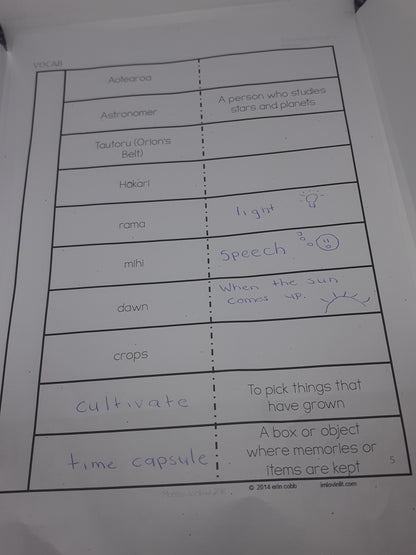 VOCAB
Aotearoa
Astronomer
A person who studies
stars and planets
Tautoru (Orion's
Belt)
Hakari
rama
light
mihi
Speech
dawn
When the sun
comes up.
crops
cultivate
To pick things that
have grown
time capsule
A box or object
where memories or
items are kept
5
© 2014 erin cobb
imlovinlit.com